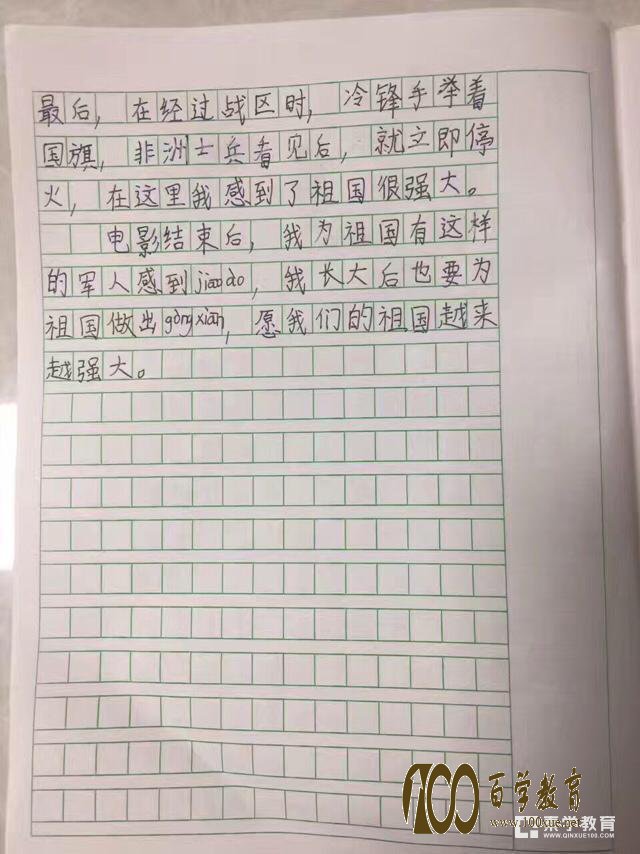 最后，在经过战区时，冷锋手举着
国旗，非洲士兵看见后，就立即停
火，在这里我感到了祖国很强大。
电影结束后，我为祖国有这样
的军人感到jiaoào，我长大后也要为
祖国做出gòngxiàn，愿我们的祖国越来
越强大。
100百学教育
www.100xue.net
亲学教育
WWW.QINXUE100.COM